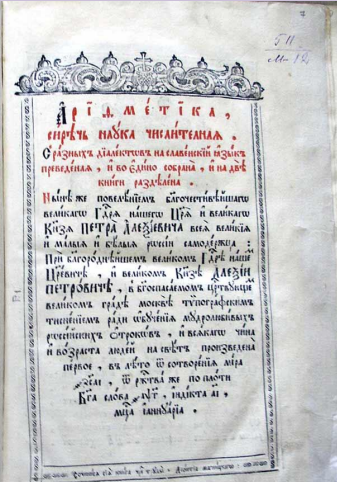 511
М-12
Арїѳме́тїка,
сирѣчь наука числительная.
С разныхъ дїалектовъ на славенскїй ꙗзыкъ
преведеная, и во едино собрана, и на двѣ
книги раздѣлена.
Нынѣ же повелѣнїемъ благочестивѣйшагѡ
великагѡ Гдⷭ҇рѧ нашегѡ Цр҃ѧ и великагѡ
Кнз҃ѧ ПЕТРА Алеѯїевича всеѧ великїѧ
и малыѧ и бѣлыѧ рѡссїи самодержца:
При благороднѣйшемъ великомъ Гдⷭ҇рѣ нашемъ
Цр҃евичѣ, и великомъ Кнз҃ѣ Алеѯїи
Петровичѣ, в бг҃оспасаемомъ црⷭ҇твующемъ
великомъ градѣ москвѣ тѵпографскимъ
тисненїемъ ради ѡбученїѧ мудролюбивыхъ
рѡссїйскихъ ѻтрокѡвъ, и всѧкагѡ чина
и возраста людей на свѣтъ произведена
первое, в лѣто ѿ сотворенїѧ мїра
҂зс҃аі, ѿ ржⷭ҇тва же по плоти
Бг҃а слова ҂аѱ҃г, індїкта аі҃,
мцⷭ҇а іаннуарїа.
Сочинисѧ сїѧ книга чрез труды Леонтїѧ магницкагѡ: